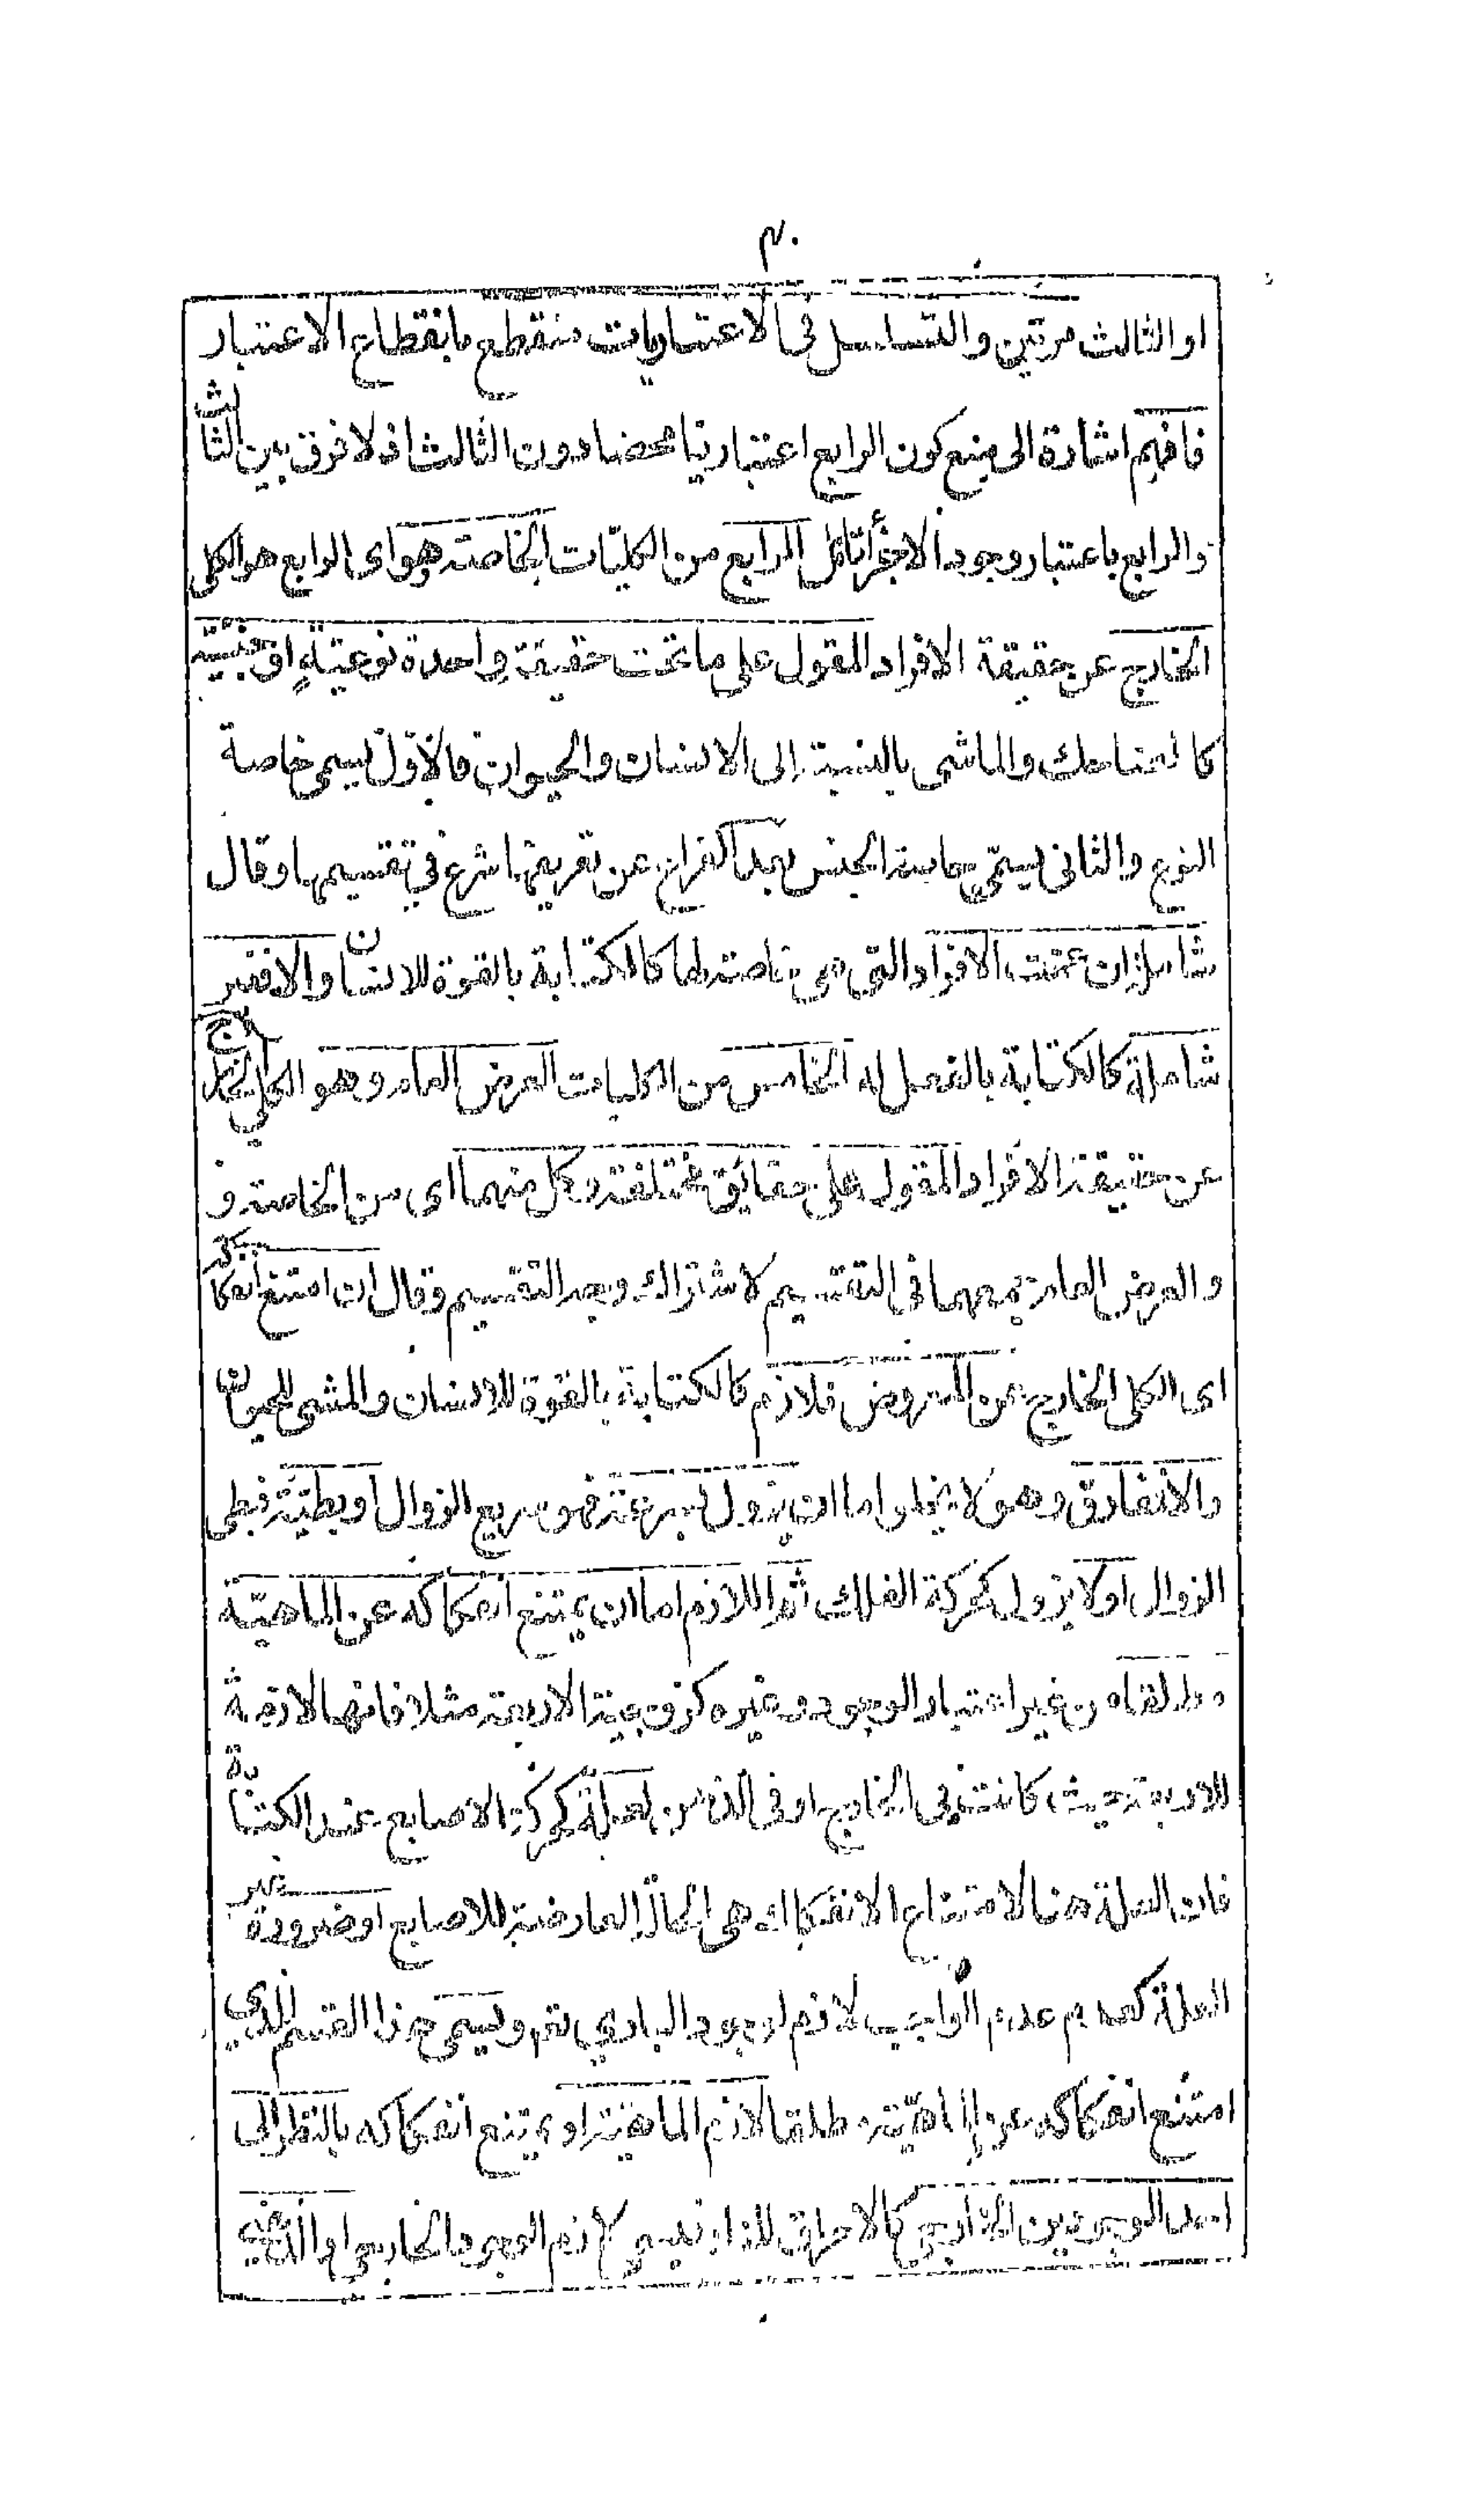 ٣٠
او الثالث مرتين والتسلسل فى الاعتباريات منقطع بانقطاع الاعتبار
فافهم اشارة الى منع كون الرابع اعتباريا محضا دون الثالث اذ لا فرق بين الثالث
والرابع باعتبار وجود الاجزأ تأمل الرابع من الكليات الخاصة وهو اى الرابع هو الكلى
الخارج عن حقيقة الافراد المقول على ما تحت حقيقة واحدة نوعيّةٍ او جنسيّة
كالضاحك والماشى بالنسبة الى الانسان والحيوان فالاوّل يسمى خاصة
النوع والثانى يسمّى خاصة الجنس بعد الفراغ عن تعريفها شرع في تقسيمها وقال
شاملة ان عمت الافراد التى هى خاصة لها كالكتابة بالقوة للانسان والا فغير
شاملة كالكتابة بالفعل له الخامس من الكليات العرض العام وهو الكلي الخارج
عن حقيقة الافراد المقول على حقايق مختلفة وكل منهما اى من الخاصة و
والعرض العام جمعهما فى التقسيم لاشتراك وجه التقسيم وقال ان امتنع انفكاكه
اى الكلى الخارج عن المعروض فلازم كالكتابة بالقوة للانسان والمشى للحيوان
والا فمفارق وهو لا يخلوا ما ان يزول بسرعة فهو سريع الزوال او بطيئة فبطى
الزوال او لا يزول كحركة الفلك ثم اللازم اما ان يمتنع انفكاكه عن الماهيّة
مطلقا من غير اعتبار الوجود وغيره كزوجية الاربعة مثلا فانها لازمة
للاربعة حيث كانت فى الخارج او فى الذهن لعلة كحركة الاصابع عند الكتابة
فان العلة هنا لامتناع الانفكاك هى الحالة العارضة للاصابع او ضرورة غير
العلة كعدم عدم الواجب لازم لوجود الباري تعم ويسمى هذا القسم الذي
امتنع انفكاكه عن الماهيّة مطلقا لازم الماهيّة او يمتنع انفكاكه بالنظر الى
احد الوجودين الخارجي كالاحراق للنار فيسمى لازم الوجود الخارجى او الذهنى